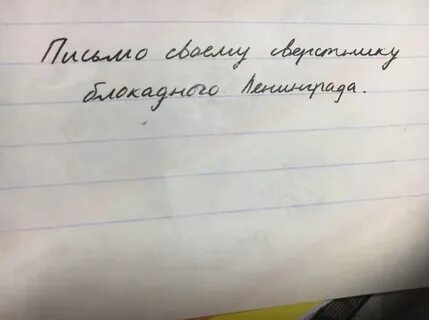 Письмо своему сверстнику
блокадного Ленинграда.